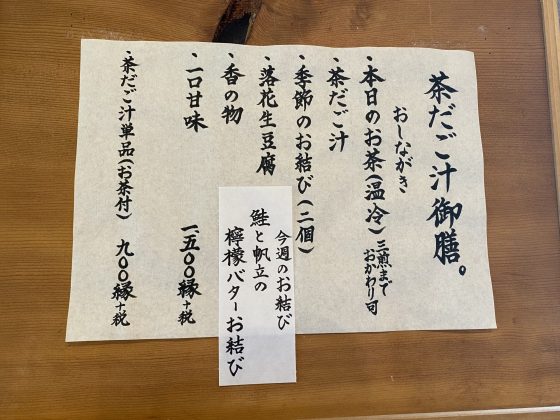 茶だご汁御膳。
おしながき
・本日のお茶(温冷)三煎までおかわり可
・茶だご汁
・季節のお結び(二個)
・落花生豆腐
・香の物
・一口甘味
一、五〇〇縁+税
・茶だご汁単品(お茶付)九〇〇縁+税
今週のお結び
鮭と帆立の
檸檬バターお結び